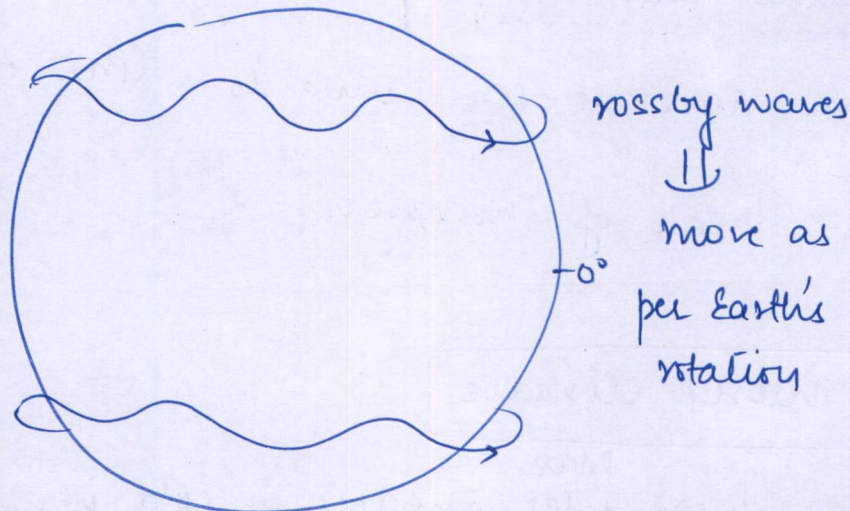 rossby waves
⇓
move as
per Earth's
rotation
0°